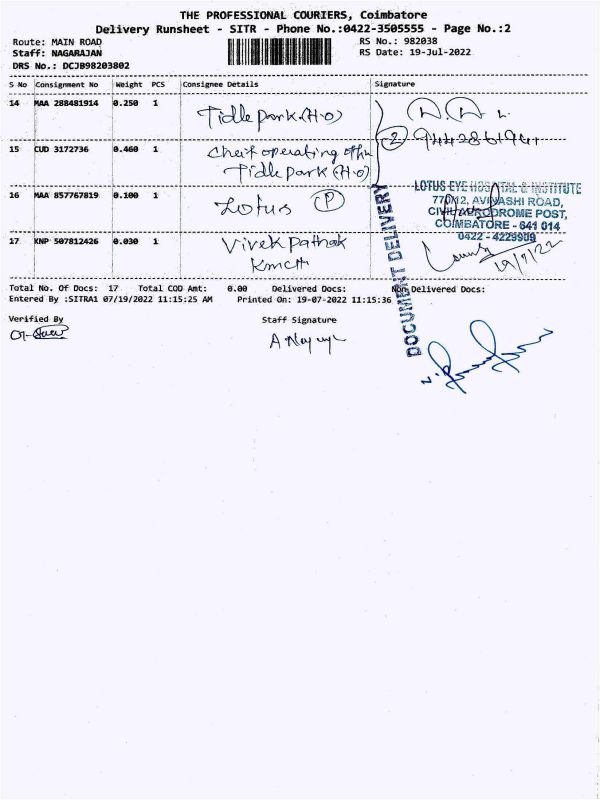 THE PROFESSIONAL COURIERS, Coimbatore
Delivery Runsheet - SITR - Phone No.:0422-3505555 - Page No.:2
Route: MAIN ROAD
RS No.: 982038
Staff: NAGARAJAN
RS Date: 19-Jul-2022
DRS No.: DCJB98203802
S No Consignment No Weight PCS Consignee Details Signature
14 MAA 288481914 0.250 1 Tidle park (H.O)
15 CUD 3172736 0.460 1 Cheif operating
Tidle park (H.O)
16 MAA 857767819 0.100 1 Lotus (P)
LOTUS EYE HOSPITAL & INSTITUTE
770/12, AVINASHI ROAD,
CIVIL AERODROME POST,
COIMBATORE - 641 014
0422 - 4229909
17 KNP 507812426 0.030 1 Vivek Pathak
KMCH
19/7/22
DOCUMENT DELIVERY
Total No. Of Docs: 17 Total COD Amt: 0.00 Delivered Docs: Non Delivered Docs:
Entered By :SITRA1 07/19/2022 11:15:25 AM Printed On: 19-07-2022 11:15:36
Verified By Staff Signature